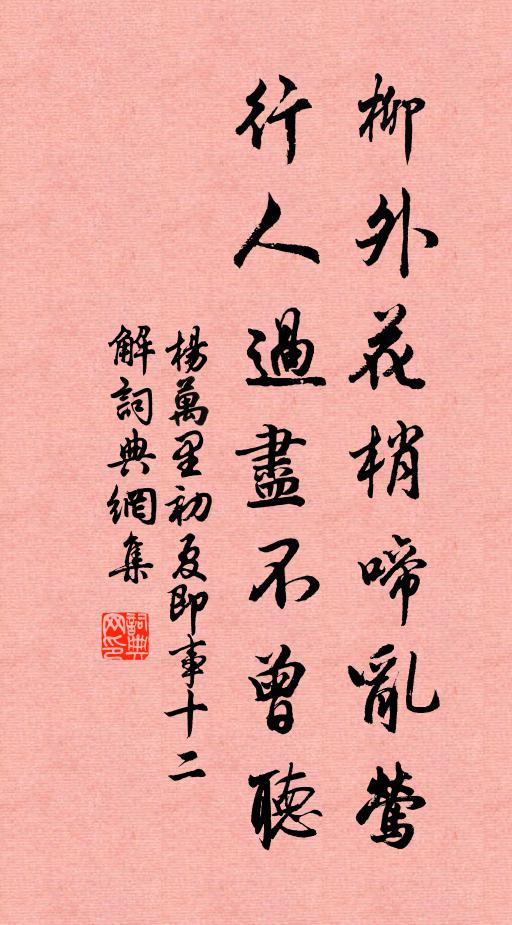 柳外花梢啼亂鶯
行人過盡不曾聽
楊萬里初夏即事十二
解詞典網集
詞典网印